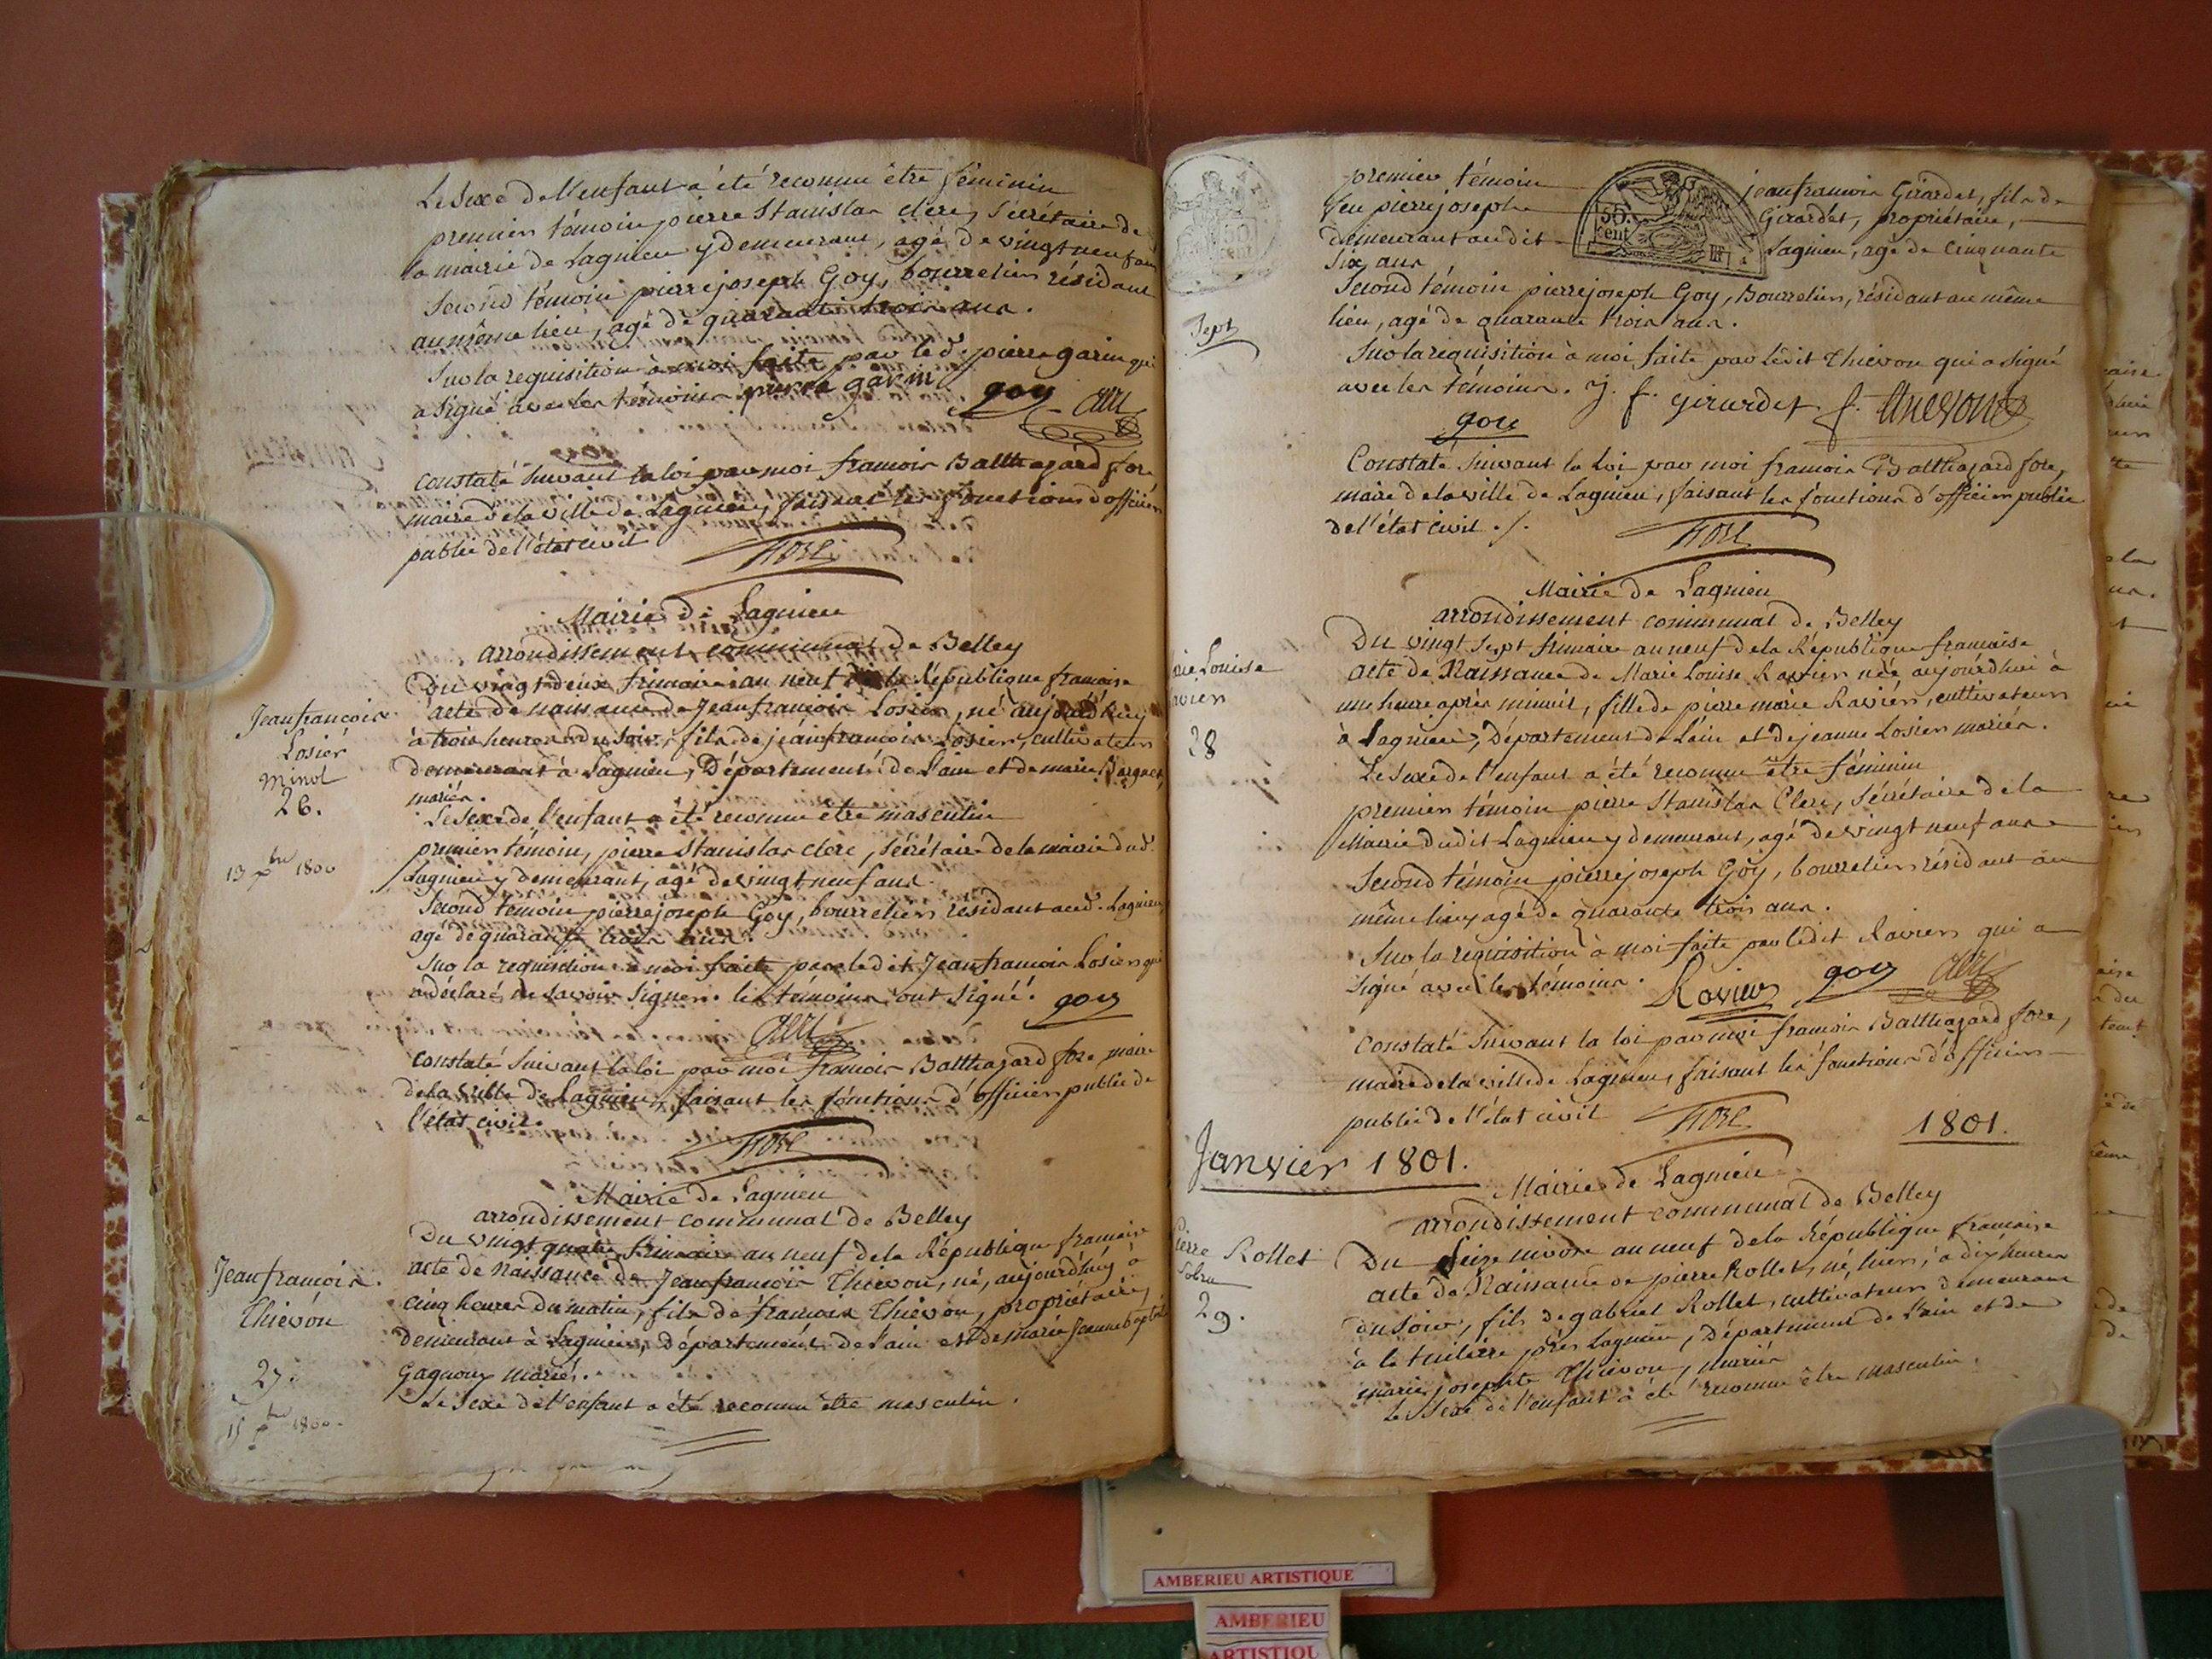 Le Sexe de l'enfant a été reconnu être féminin
premier témoin pierre Stanislas clerc, Sécrétaire de
la mairie de Lagnieu y demeurant, agé de vingt neuf ans
Second témoin pierre joseph Goy, bourrelier résidant
au même lieu, agé de quarante trois ans.
Sur la requisition à moi faite par led. pierre garin qui
a Signé avec les témoins pierre garin goy clerc
Constaté Suivant la loi par moi francois Balthazard fore
maire de la ville de Lagnieu, faisant les fonctions d'officier
public de l'état civil
FORE
Mairie de Lagnieu
arrondissement communal de Belley
Du vingt deux frimaire an neuf de la République francaise
Jean françois
Losier
minol
26.
13 xbre 1800
acte de naissance de Jean francois Losier, né aujourd'huy
à trois heures du Soir, fils de jean francois Losier, cultivateur
demeurant à Lagnieu, Département de l'ain et de marie
mariés.
Le Sexe de l'enfant a été reconnu être masculin
premier témoin, pierre Stanislas clerc, Sécrétaire de la mairie dud.
Lagnieu y demeurant, agé de vingt neuf ans.
Second témoin pierre joseph Goy, bourrelier résidant aud. Lagnieu,
agé de quarante trois ans.
Sur la requisition à moi faite par ledit Jean francois Losier qui
a déclaré ne Savoir Signer. les témoins ont Signé. goy
clerc
Constaté Suivant la loi par moi francois Balthazard fore, maire
de la ville de Lagnieu, faisant les fonctions d'officier public de
l'état civil.
FORE
Mairie de Lagnieu
arrondissement communal de Belley
Du vingt quatre frimaire an neuf de la République francaise
Jean francois.
Thievon
27.
15 xbre 1800.
acte de Naissance de Jean francois Thievon, né, aujourd'huy à
cinq heures du matin, fils de francois Thievon, propriétaire,
demeurant à Lagnieu, département de l'ain et de marie Jeanne
Gagnoux mariés.
Le Sexe de l'enfant a été reconnu être masculin.
premier témoin jean francois Girardet, fils de
feu pierre joseph Girardet, propriétaire,
demeurant audit Lagnieu, agé de Cinquante
Six ans
cent
Second témoin pierre joseph Goy, Bourrelier, résidant au même
lieu, agé de quarante trois ans.
Sept
Sur la requisition à moi faite par ledit Thievon qui a Signé
avec les témoins. J. f. girardet f. thievon
goy
Constaté Suivant la Loi par moi francois Balthazard fore,
maire de la ville de Lagnieu, faisant les fonctions d'officier public
de l'état civil ./.
FORE
Mairie de Lagnieu
arrondissement communal de Belley
Du vingt Sept frimaire an neuf de la République francaise
rie Louise
avier
28
acte de Naissance de Marie Louise Ravier née aujourdhui à
une heure après minuit, fille de pierre marie Ravier, cultivateur
à Lagnieu, Département de l'ain et de jeanne Losier mariés.
Le Sexe de l'enfant a été reconnu être féminin
premier témoin pierre Stanislas Clerc, Sécrétaire de la
Mairie dudit Lagnieu y demeurant, agé de vingt neuf ans
Second témoin pierre joseph Goy, bourrelier résidant au
même lieu, agé de quarante trois ans.
Sur la requisition à moi faite par ledit Ravier qui a
Signé avec les témoins. Ravier goy clerc
Constaté Suivant la loi par moi francois Balthazard fore,
maire de la ville de Lagnieu, faisant les fonctions d'officier
public de l'état civil FORE
1801.
Janvier 1801.
Mairie de Lagnieu
arrondissement communal de Belley
Pierre Rollet
29.
Du Seize nivose an neuf de la République francaise
acte de Naissance de pierre Rollet, né, hier, à dix heures
du Soir, fils de gabriel Rollet, cultivateur demeurant
à la tuilière près Lagnieu, Département de l'ain et de
marie josephte Thievon, mariés
Le Sexe de l'enfant a été reconnu être masculin.
AMBERIEU ARTISTIQUE
AMBERIEU